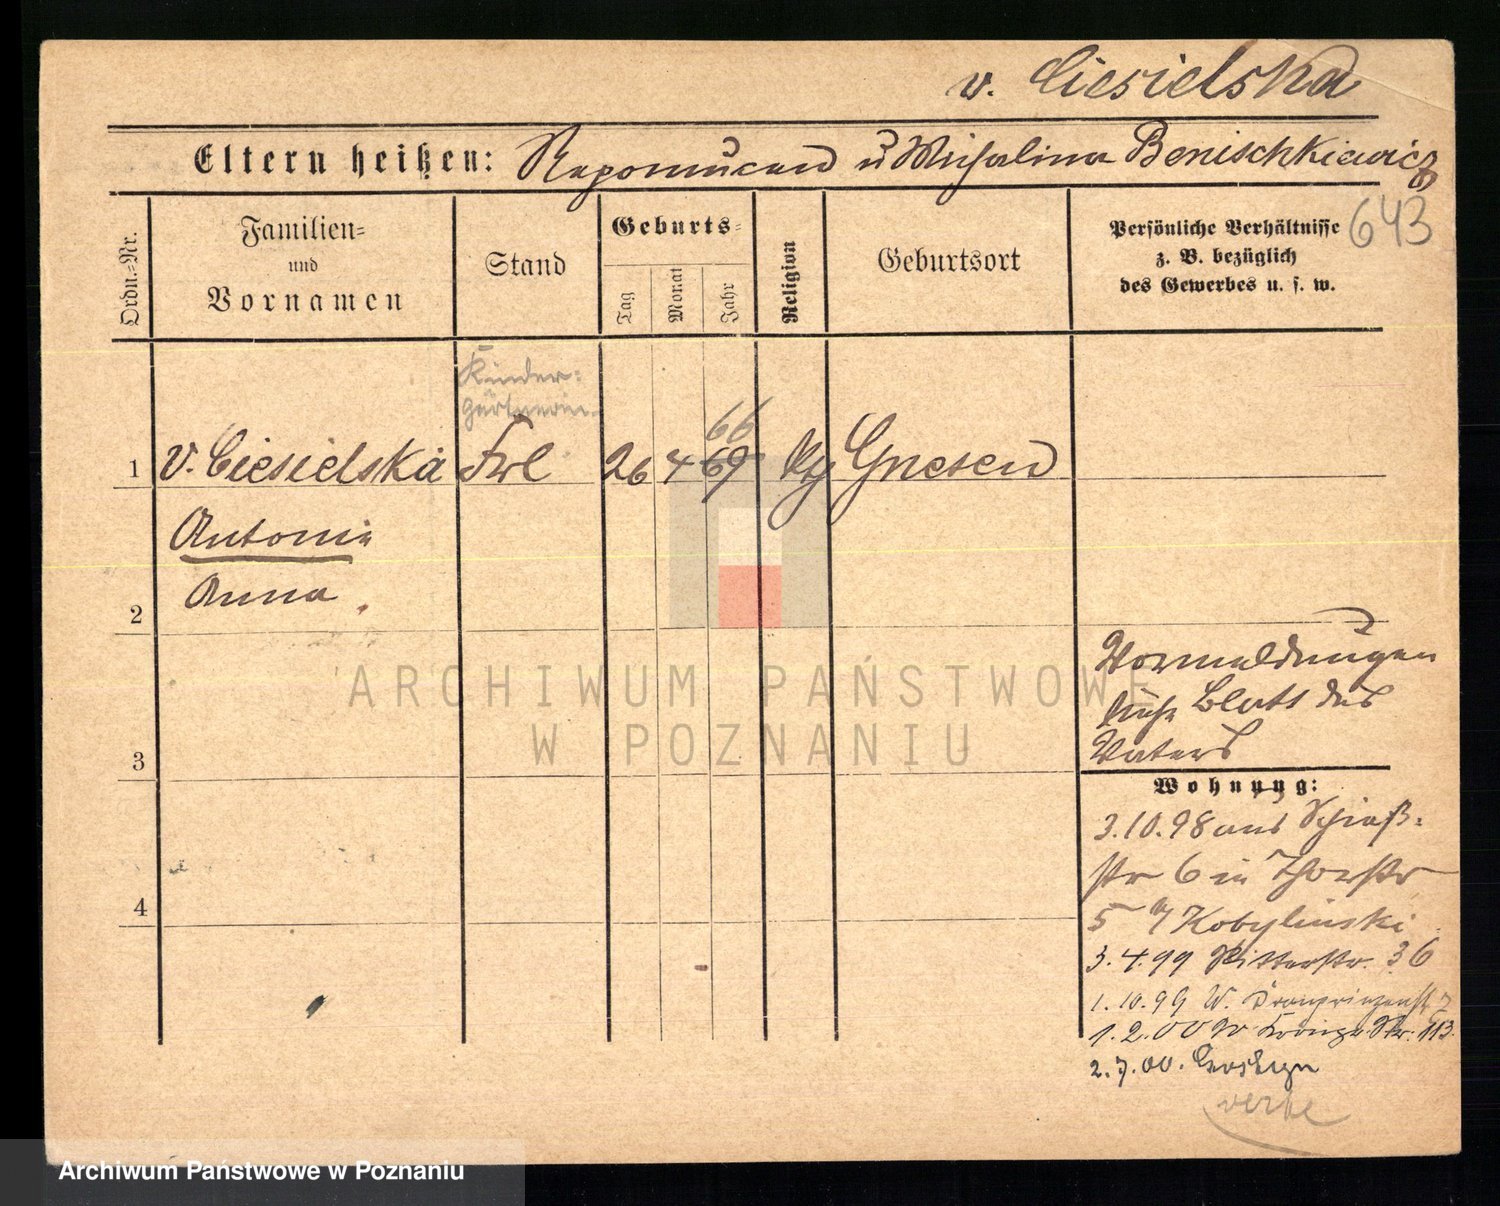 v. Ciesielska
Eltern heißen: Nepomucen u Michalina Benischkiewicz
643
Ordn.-Nr.
Familien-
und
Vornamen
Stand
Geburts-
Tag
Monat
Jahr
Religion
Geburtsort
Persönliche Verhältnisse
z. B. bezüglich
des Gewerbes u. s. w.
Kinder-
gärtnerin
66
1 v. Ciesielska Frl 26 4 69 Gnesen
Antonie
Anna
2
3
4
Vormeldungen
siehe Blatt des
Vaters
Wohnung:
3.10.98 aus Schieß-
str 6 in Thorstr
5 Kobylinski
3.4.99 Ritterstr. 36
1.10.99 W. Kronprinzenst
1.2.00 W Kronpr. Str. 113.
2.7.00. Gostyn
ARCHIWUM PAŃSTWOWE
W POZNANIU
Archiwum Państwowe w Poznaniu